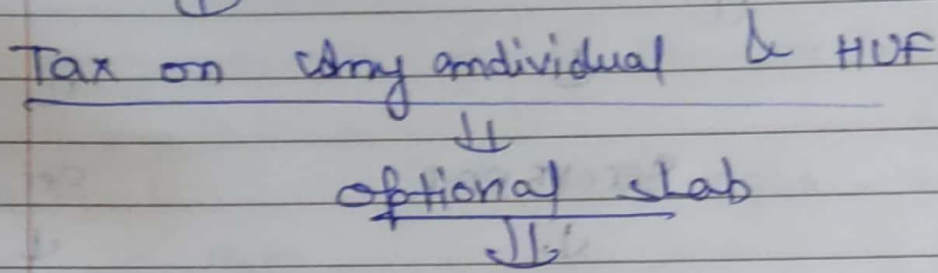 Tax on Any individual & HUF
⇓
optional slab
⇓